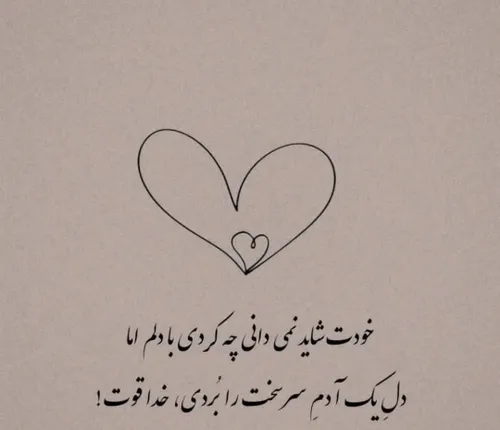 خودت شاید نمی دانی چه کردی با دلم اما
دلِ یک آدمِ سرسخت را بُردی، خدا قوت!